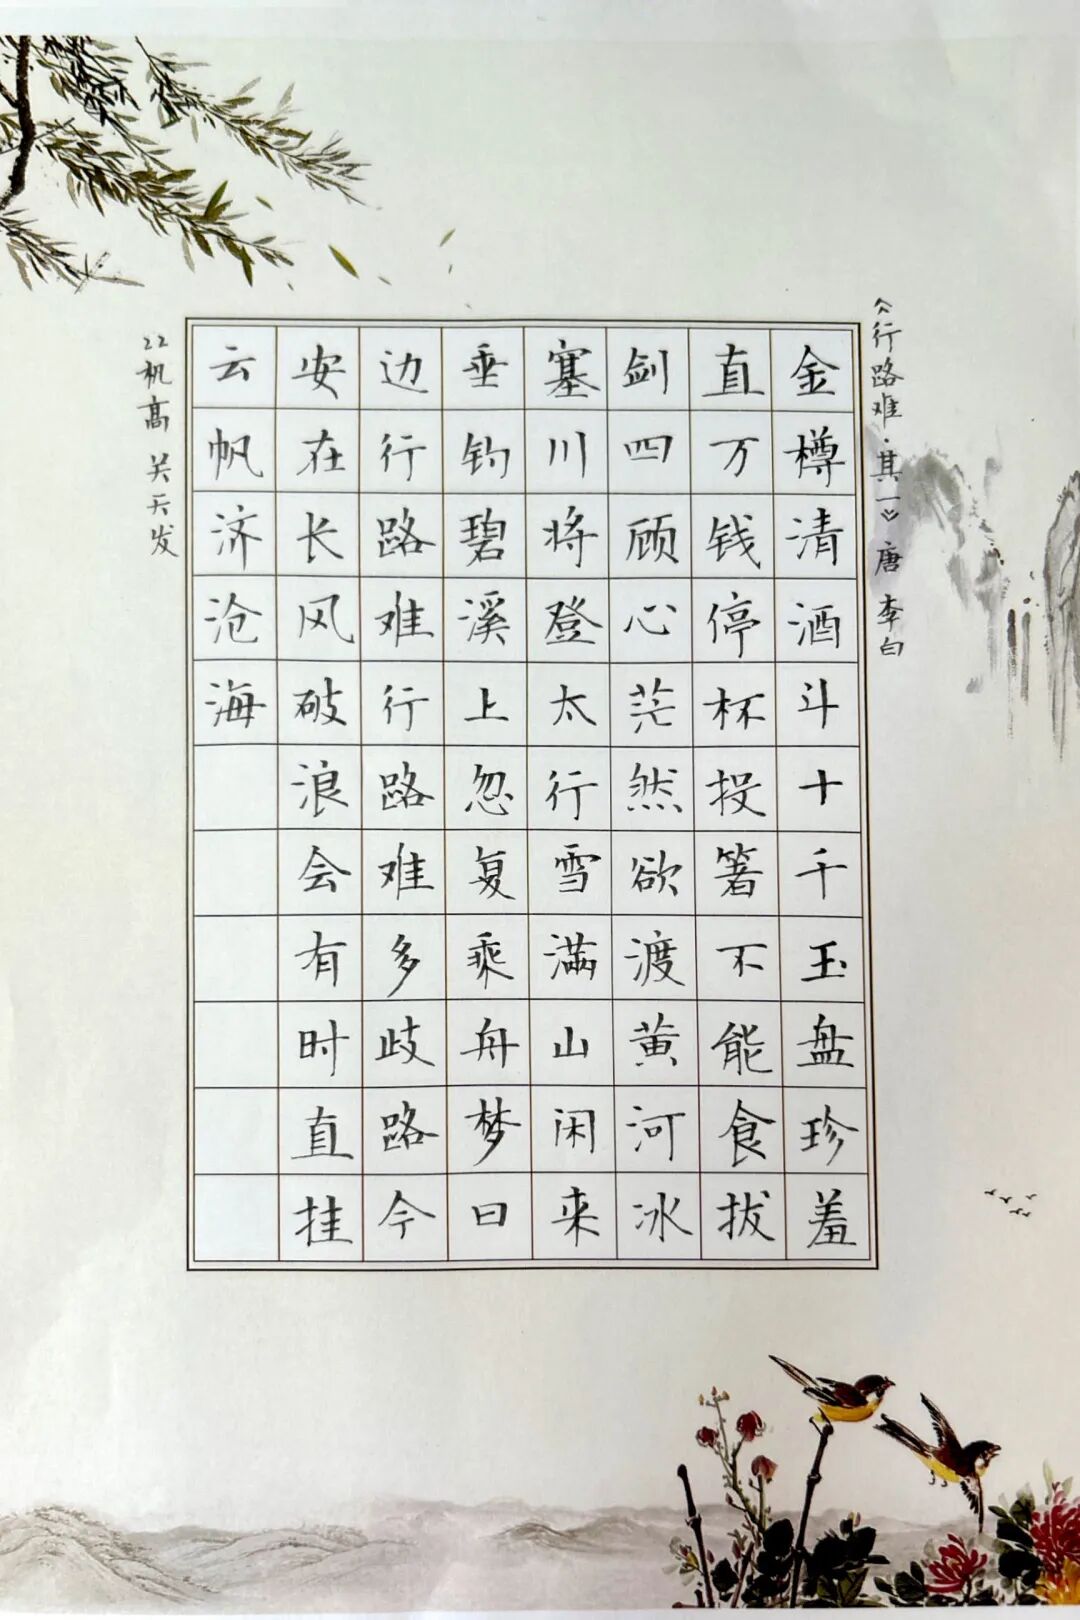 《行路难·其一》唐 李白
金樽清酒斗十千玉盘珍羞
直万钱停杯投箸不能食拔
剑四顾心茫然欲渡黄河冰
塞川将登太行雪满山闲来
垂钓碧溪上忽复乘舟梦日
边行路难行路难多歧路今
安在长风破浪会有时直挂
云帆济沧海
22机高 关天发